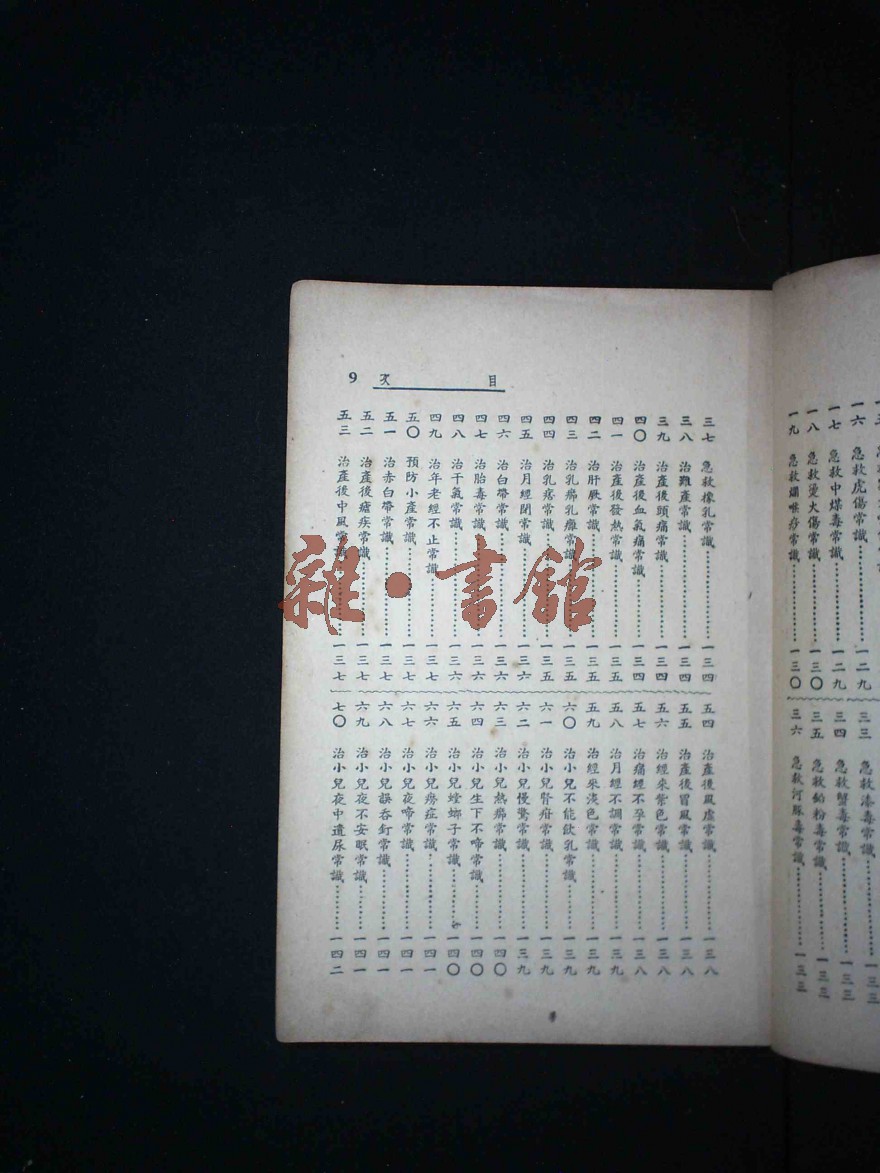 一六 急救虎傷常識……一二九
一七 急救中煤毒常識……一二九
一八 急救燙火傷常識……一三〇
一九 急救爛喉痧常識……一三〇
三三 急救漆毒常識……一三三
三四 急救蟹毒常識……一三三
三五 急救鉛粉毒常識……一三三
三六 急救河豚毒常識……一三三
目次 9
三七 急救橡乳常識……一三四
三八 治難產常識……一三四
三九 治產後頭痛常識……一三四
四〇 治產後血氣痛常識……一三四
四一 治產後發熱常識……一三五
四二 治肝厥常識……一三五
四三 治乳癤乳癰常識……一三五
四四 治乳瘍常識……一三五
四五 治月經閉常識……一三六
四六 治白帶常識……一三六
四七 治胎毒常識……一三六
四八 治干氣常識……一三六
四九 治年老經不止常識……一三七
五〇 預防小產常識……一三七
五一 治赤白帶常識……一三七
五二 治產後瘧疾常識……一三七
五三 治產後中風常識……一三七
五四 治產後風虛常識……一三八
五五 治產後冒風常識……一三八
五六 治經來紫色常識……一三八
五七 治痛經不孕常識……一三八
五八 治月經不調常識……一三九
五九 治經來淡色常識……一三九
六〇 治小兒不能飲乳常識……一三九
六一 治小兒腎疳常識……一三九
六二 治小兒慢驚常識……一三九
六三 治小兒熱癤常識……一四〇
六四 治小兒生下不啼常識……一四〇
六五 治小兒螳螂子常識……一四〇
六六 治小兒痨症常識……一四一
六七 治小兒夜啼常識……一四一
六八 治小兒誤吞釘常識……一四一
六九 治小兒夜不安眠常識……一四一
七〇 治小兒夜中遺尿常識……一四二
雜·書館